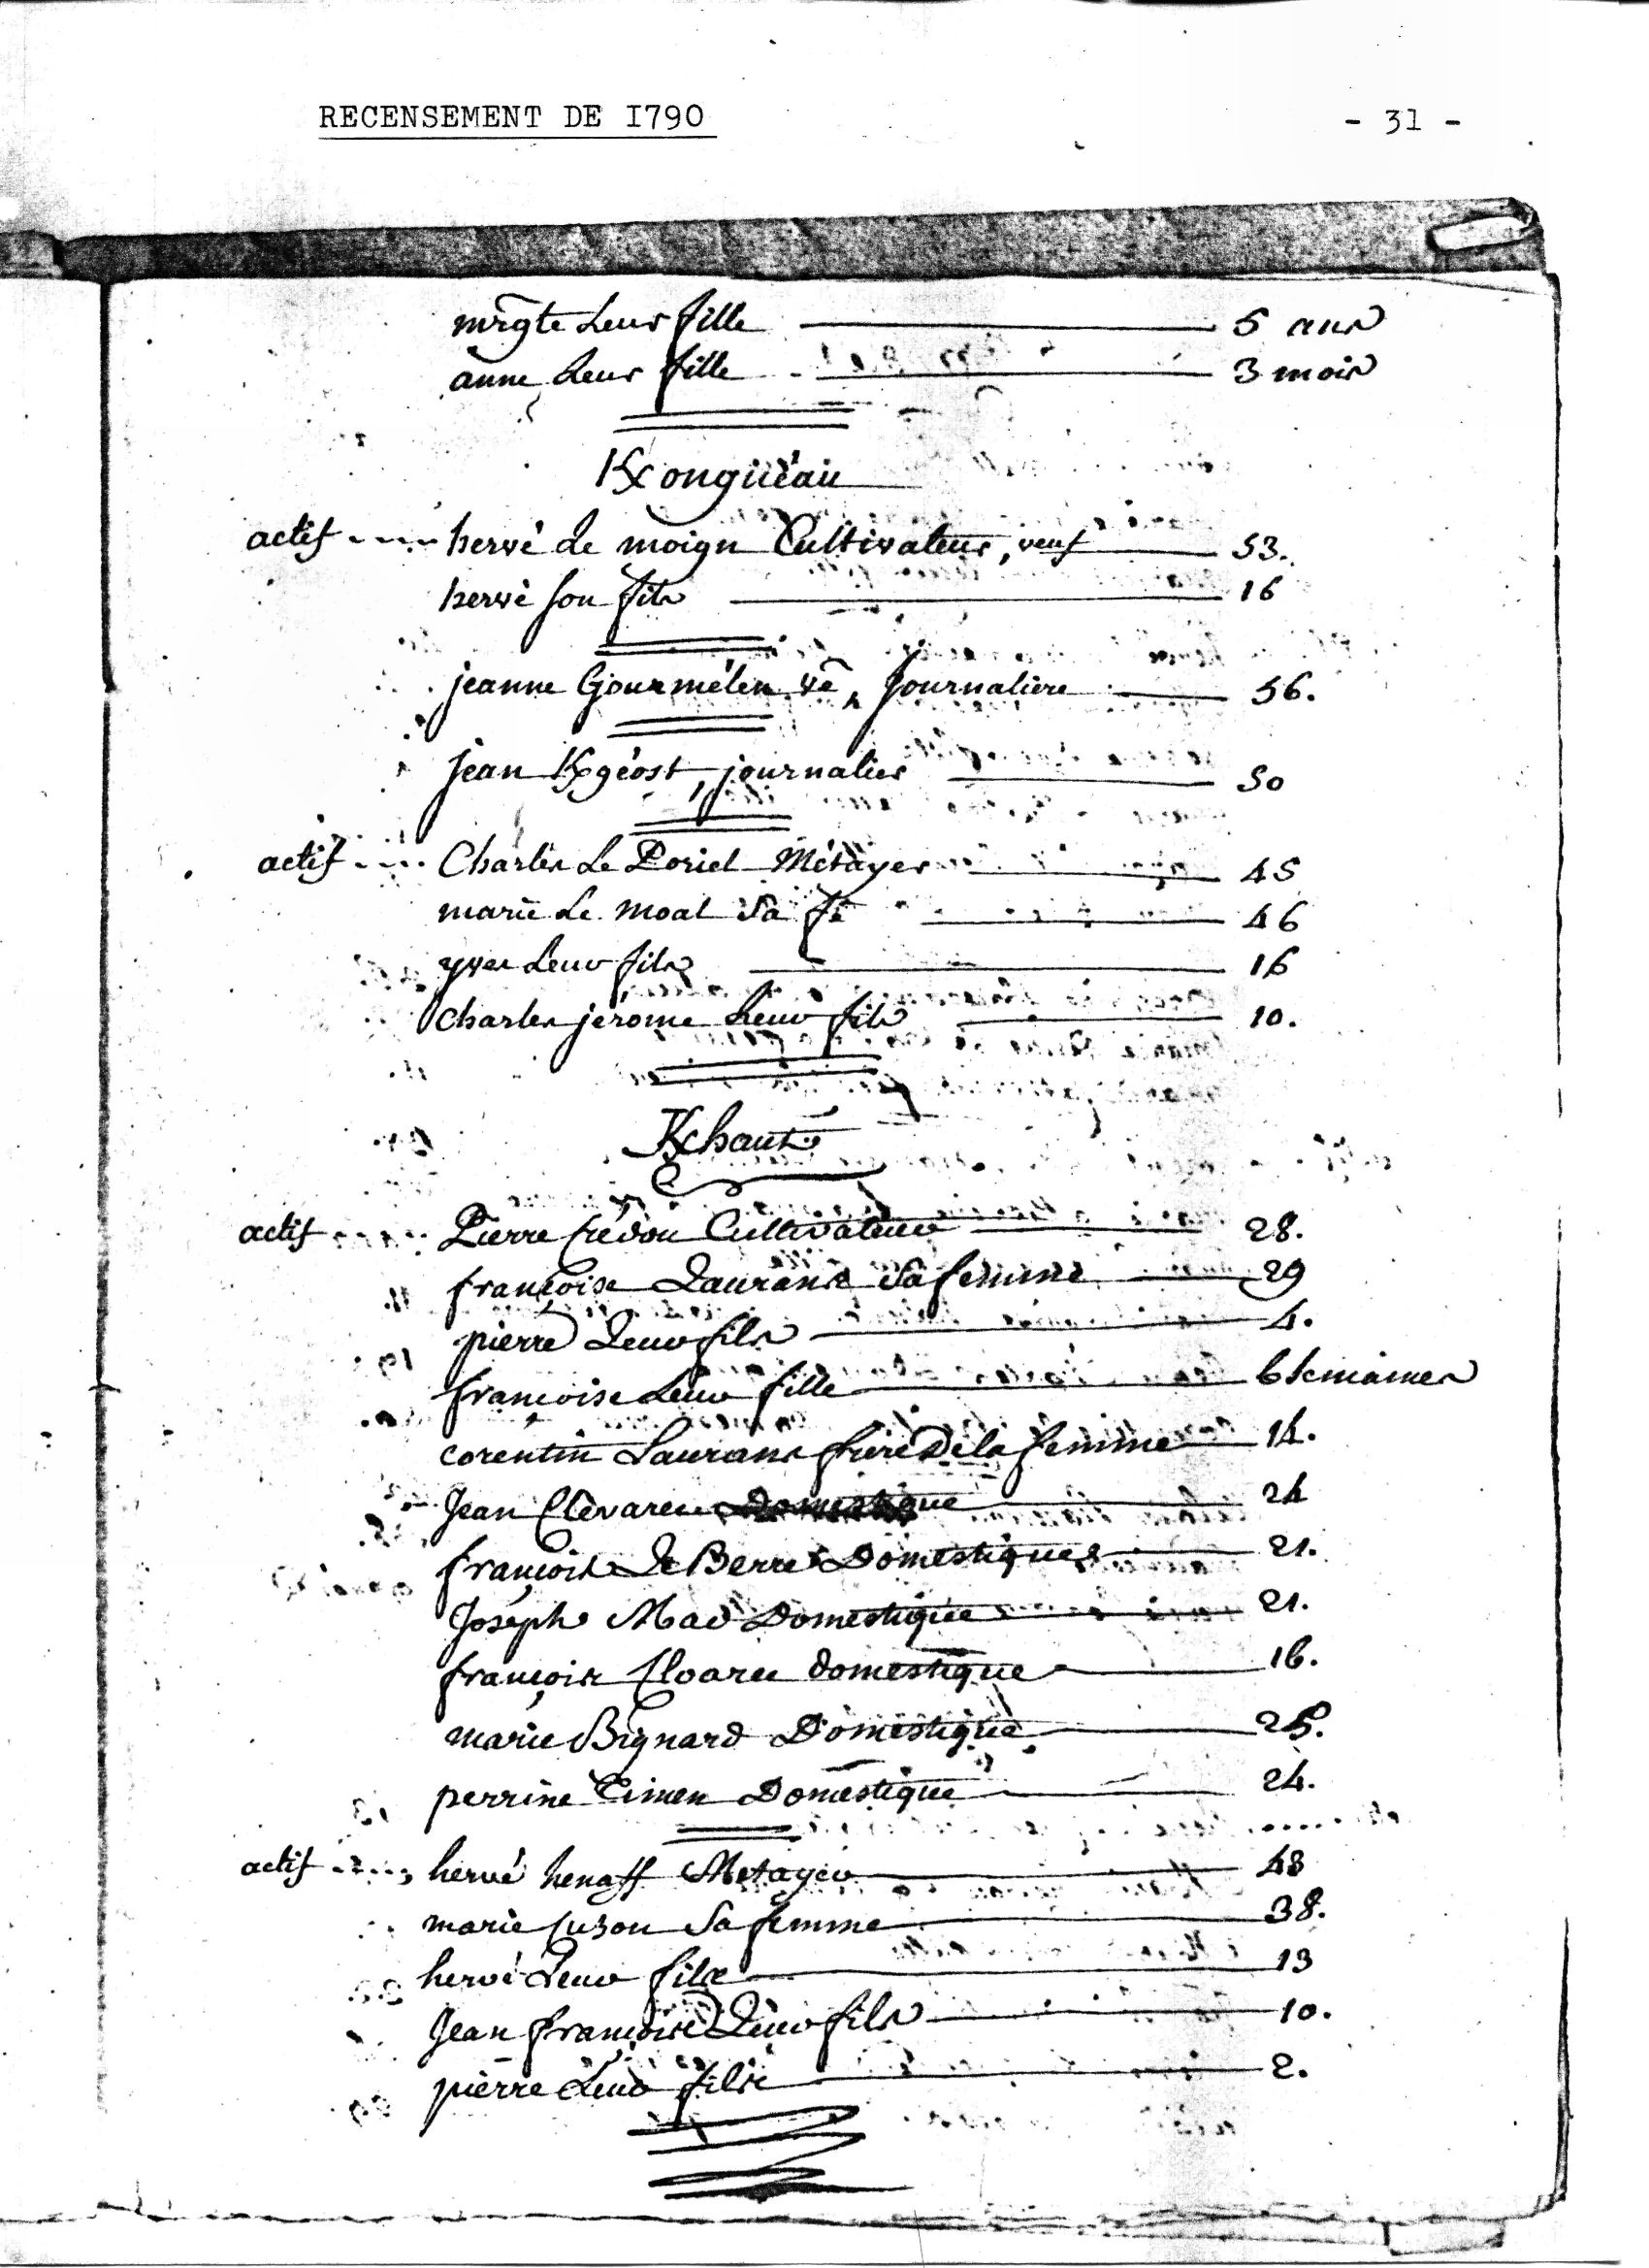 RECENSEMENT DE I790 - 31 -
mrgte Leur fille 5 ans
anne Leur fille 3 mois
Kongüéau
actif hervé Le moign Cultivateur, veuf 53.
hervé son fils 16
jeanne Gourmélen vē, Journaliere 56.
jean Kgéost, journalier 50
actif Charles Le Doriel Métayer 45
marie Le moal Sa fē 46
yves Leur fils 16
charles jérome Leur fils 10.
Kchaut
actif Pierre Crédou Cultivateur 28.
françoise Laurans Sa femme 29
pierre Leur fils 4.
françoise Leur fille 6 semaines
corentin Laurans frere De la femme 14.
Jean Clévarec Domestique 24
françois Le Berre Domestiques 21.
Joseph Mao Domestique 21.
françois Cloarec domestique 16.
marie Bignard Domestique 25.
perrine Domestique 24.
actif hervé henaff Metayer 48
marie Cuzon Sa femme 38.
hervé Leur fils 13
Jean françois Leur fils 10.
pierre Leur fils 2.